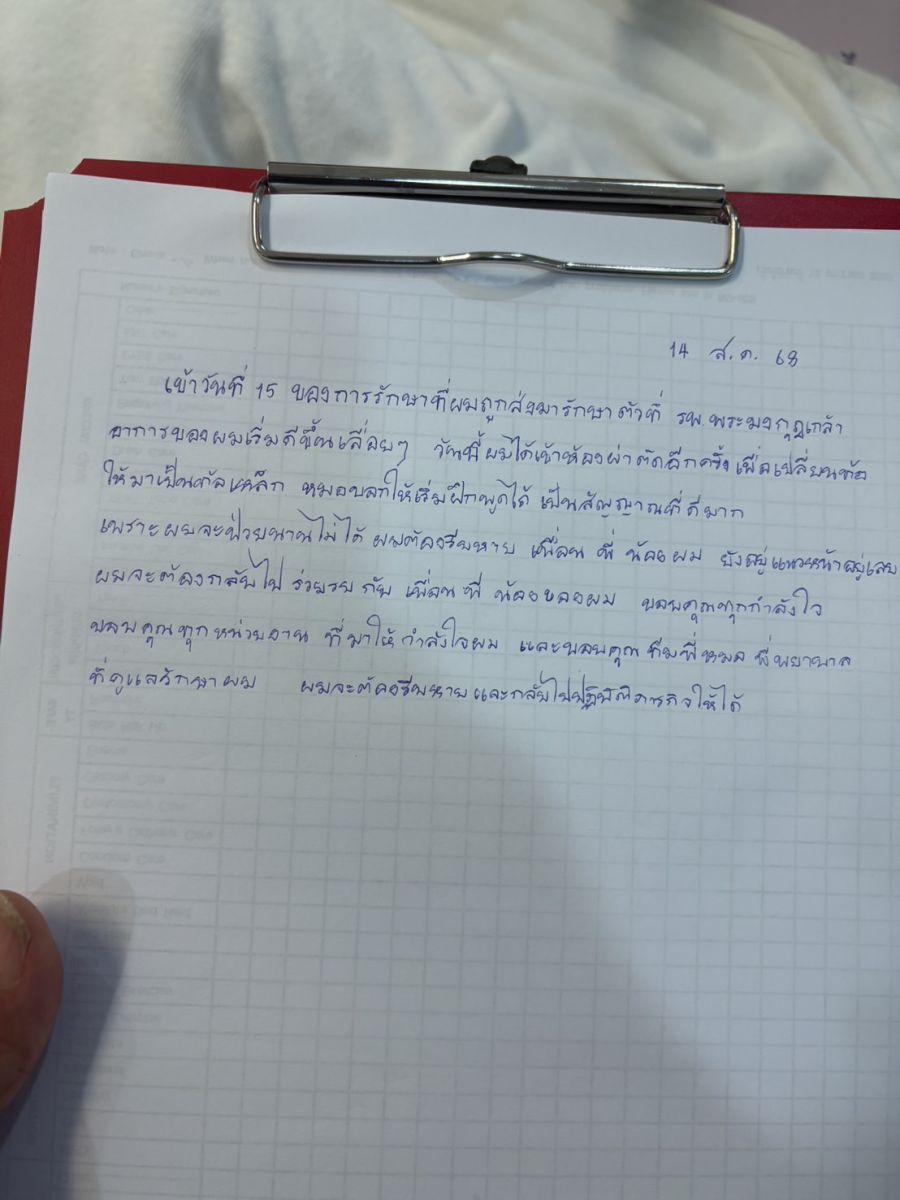 14 ส.ค. 68
เข้าวันที่ 15 ของการรักษาที่ผมถูกส่งมารักษาตัวที่ รพ.พระมงกุฎเกล้า
อาการของผมเริ่มดีขึ้นเลื่อยๆ วันนี้ผมได้เข้าห้องผ่าตัดอีกครั้งเพื่อเปลี่ยนท่อ
ให้มาเป็นท่อเหล็ก หมอบอกให้เริ่มฝึกพูดได้ เป็นสัญญาณที่ดีมาก
เพราะผมจะป่วยนานไม่ได้ ผมต้องรีบหาย เพื่อน พี่ น้องผม ยังอยู่แนวหน้าอยู่เลย
ผมจะต้องกลับไป ร่วมรบ กับ เพื่อน พี่ น้องของผม ขอบคุณทุกกำลังใจ
ขอบคุณทุกหน่วยงาน ที่มาให้กำลังใจผม และขอบคุณ ทีมพี่หมอ พี่พยาบาล
ที่ดูแลรักษาผม ผมจะต้องรีบหายและกลับไปปฏิบัติภารกิจให้ได้